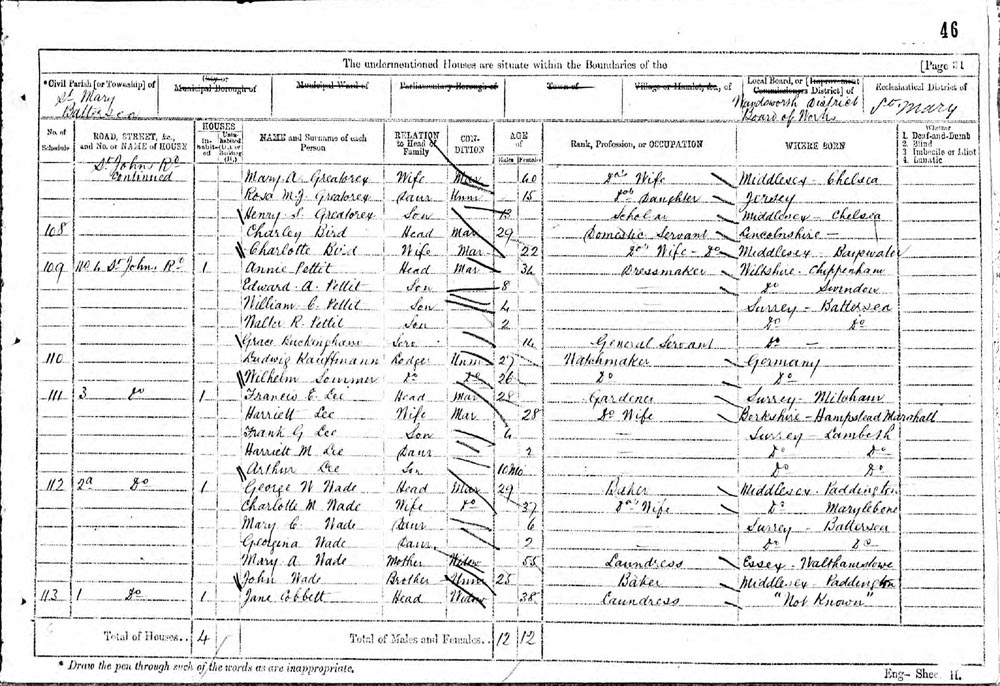 46
The undermentioned Houses are situate within the Boundaries of the [Page 31
*Civil Parish [or Township] of St. Mary Battersea
City or Municipal Borough of
Municipal Ward of
Parliamentary Borough of
Town of
Village or Hamlet, &c., of
Local Board, or [Improvement Commissioners District] of Wandsworth District Board of Works
Ecclesiastical District of St. Mary
No. of Schedule | ROAD, STREET, &c., and No. or NAME of HOUSE | HOUSES Inhabited | Uninhabited (U.), or Building (B.) | NAME and Surname of each Person | RELATION to Head of Family | CONDITION | AGE Males | Females | Rank, Profession, or OCCUPATION | WHERE BORN | Whether 1. Deaf-and-Dumb 2. Blind 3. Imbecile or Idiot 4. Lunatic
St. Johns Rd Continued Mary A. Greatorex Wife Mar 40 Do's Wife Middlesex - Chelsea
Rosa M. J. Greatorex Daur Unm 15 Do's Daughter Jersey
Henry S. Greatorex Son 13 Scholar Middlesex - Chelsea
108 Charley Bird Head Mar 29 Domestic Servant Lincolnshire -
Charlotte Bird Wife Mar 22 Do's Wife - Do Middlesex Bayswater
109 St. Johns Rd 1 Annie Pettit Head Mar 34 Dressmaker Wiltshire - Chippenham
Edward A. Pettit Son 8 - Do Swindon
William C. Pettit Son 4 Surrey - Battersea
Walter R. Pettit Son 2 Do Do
Grace Buckingham Serv 14 General Servant Do -
110 Ludwig Kauffmann Lodger Unm 27 Watchmaker Germany
Wilhelm Sommer Do Do 26 Do Do
111 3 Do 1 Francis C. Lee Head Mar 28 Gardener Surrey - Mitcham
Harriett Lee Wife Mar 28 Do Wife Berkshire - Hampstead Marshall
Frank G. Lee Son 4 - Surrey - Lambeth
Harriett M. Lee Daur 2 - Do Do
Arthur Lee Son 10 Mo Do Do
112 2a Do 1 George W. Wade Head Mar 29 Baker Middlesex - Paddington
Charlotte M. Wade Wife Do 37 Do's Wife Do Marylebone
Mary C. Wade Daur 6 - Surrey - Battersea
Georgina Wade Daur 2 - Do Do
Mary A. Wade Mother Widow 55 Laundress Essex - Walthamstowe
John Wade Brother Unm 25 Baker Middlesex - Paddington
113 1 Do 1 Jane Cobbett Head Widow 38 Laundress "Not Known"
Total of Houses.. 4
Total of Males and Females.. 12 12
* Draw the pen through such of the words as are inappropriate.
Eng- Sheet H.